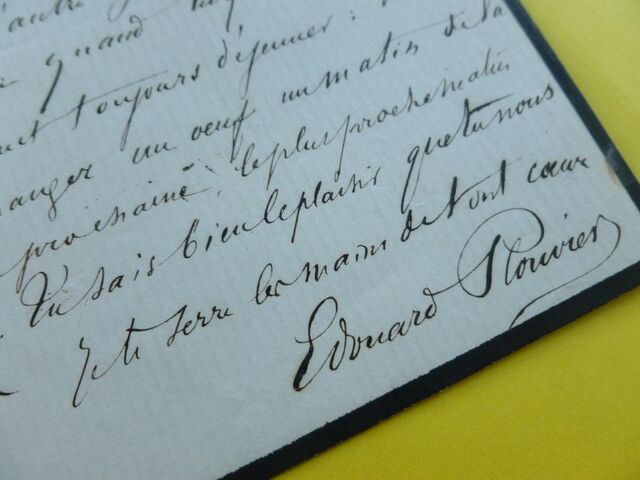 autre
quand
toujours déjeuner :
manger un oeuf un matin de la
prochaine, le plus proche matin
Tu sais bien le plaisir que tu nous
Je te serre les mains de tout coeur
Edouard Plouvier